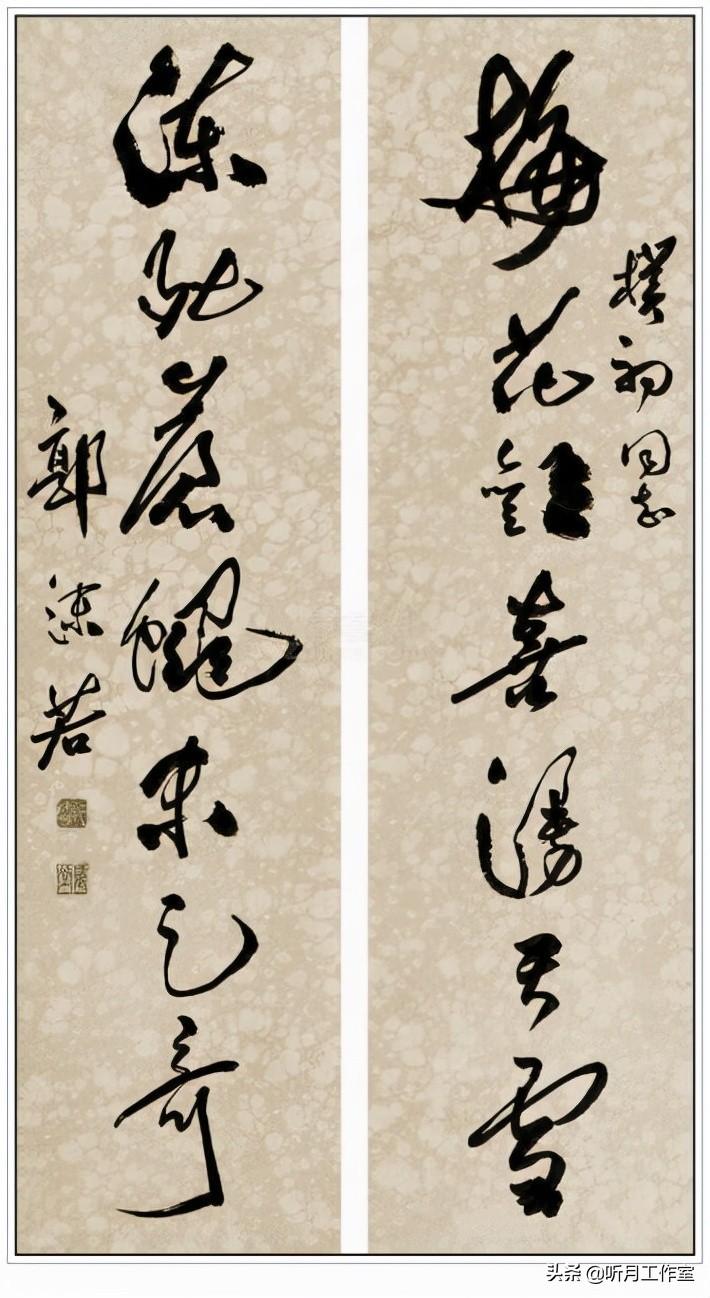 樸初同志
梅花歡喜漫天雪
凍死蒼蠅未足奇
郭沫若
头条 @听月工作室